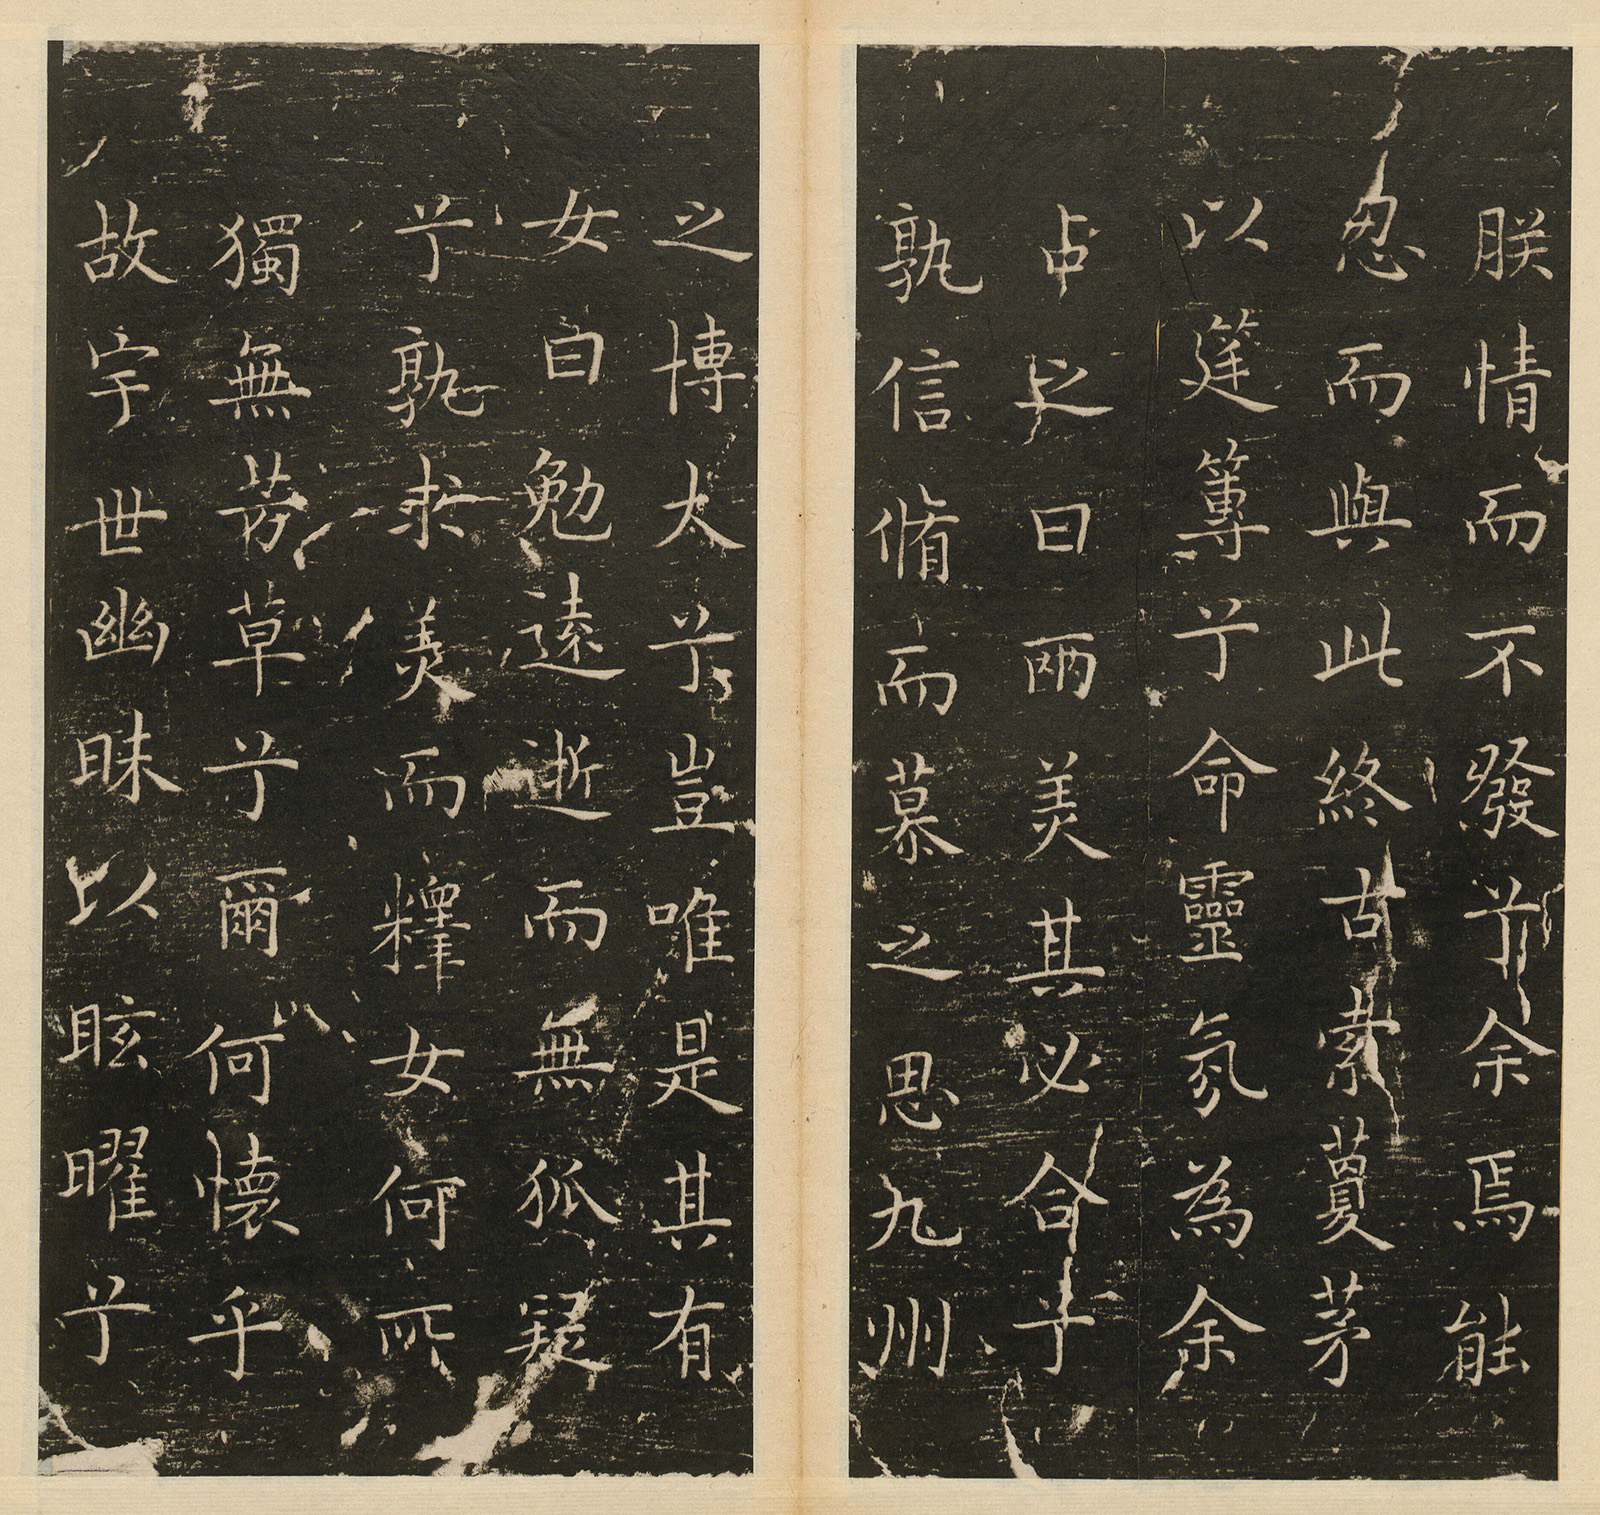 朕情而不發兮余焉能
忍而與此終古索藑茅
以筳篿兮命靈氛為余
占之曰兩美其必合兮
孰信脩而慕之思九州
之博大兮豈唯是其有
女曰勉遠逝而無狐疑
兮孰求美而釋女何所
獨無芳草兮爾何懷乎
故宇世幽昧以眩曜兮